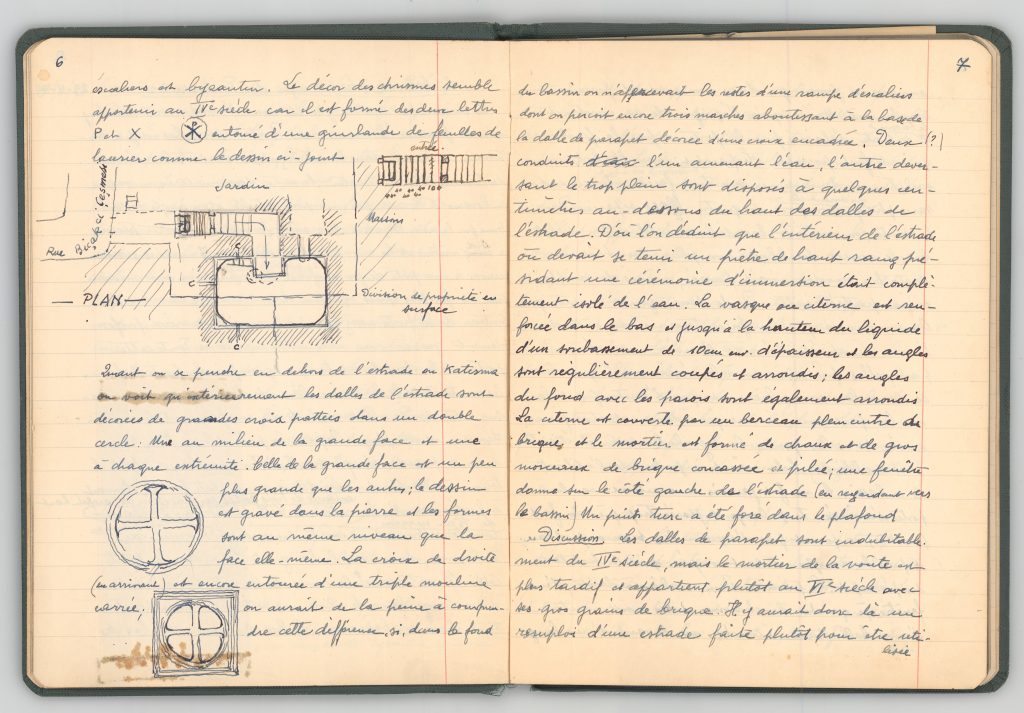 6
escaliers est byzantin. Le décor des chrismes semble
appartenir au IVe siècle car il est formé des deux lettres
P et X entouré d'une guirlande de feuilles de
laurier comme le dessin ci-joint
entrée
Jardin
Maisons
Rue
Çeşmele
C
C
C
— PLAN —
Division de propriété en
surface
Quant on se penche en dehors de l'estrade ou Katisma
on voit qu'extérieurement les dalles de l'estrade sont
décorées de grandes croix pattées dans un double
cercle. Une au milieu de la grande face et une
à chaque extrémité. Celle de la grande face est un peu
plus grande que les autres; le dessin
est gravé dans la pierre et les formes
sont au même niveau que la
face elle-même. La croix de droite
(en arrivant) est encore entourée d'une triple moulure
carrée; on aurait de la peine à compren-
dre cette différence, si, dans le fond
7
du bassin on n'appercevait les restes d'une rampe d'escaliers
dont on perçoit encore trois marches aboutissant à la base de
la dalle de parapet décorée d'une croix encadrée. Deux (?)
conduits l'un amenant l'eau, l'autre dever-
sant le trop plein sont disposés à quelques cen-
timètres au-dessous du haut des dalles de
l'estrade. D'où l'on déduit que l'intérieur de l'estrade
où devait se tenir un prêtre de haut rang pré-
sidant une cérémonie d'immersion était complè-
tement isolé de l'eau. La vasque ou citerne est ren-
forcée dans le bas et jusqu'à la hauteur du liquide
d'un soubassement de 10cm env. d'épaisseur et les angles
sont régulièrement coupés et arrondis; les angles
du fond avec les parois sont également arrondis
La citerne est couverte par un berceau plein cintre de
brique, et le mortier est formé de chaux et de gros
morceaux de brique concassée et pilée; une fenêtre
donne sur le côté gauche de l'estrade (en regardant vers
le bassin) Un puits turc a été foré dans le plafond
Discussion. Les dalles de parapet sont indubitable-
ment du IVe siècle, mais le mortier de la voûte est
plus tardif et appartient plutôt au VIe siècle avec
ses gros grains de brique. Il y aurait donc là un
remploi d'une estrade faite plutôt pour être uti-
lisée